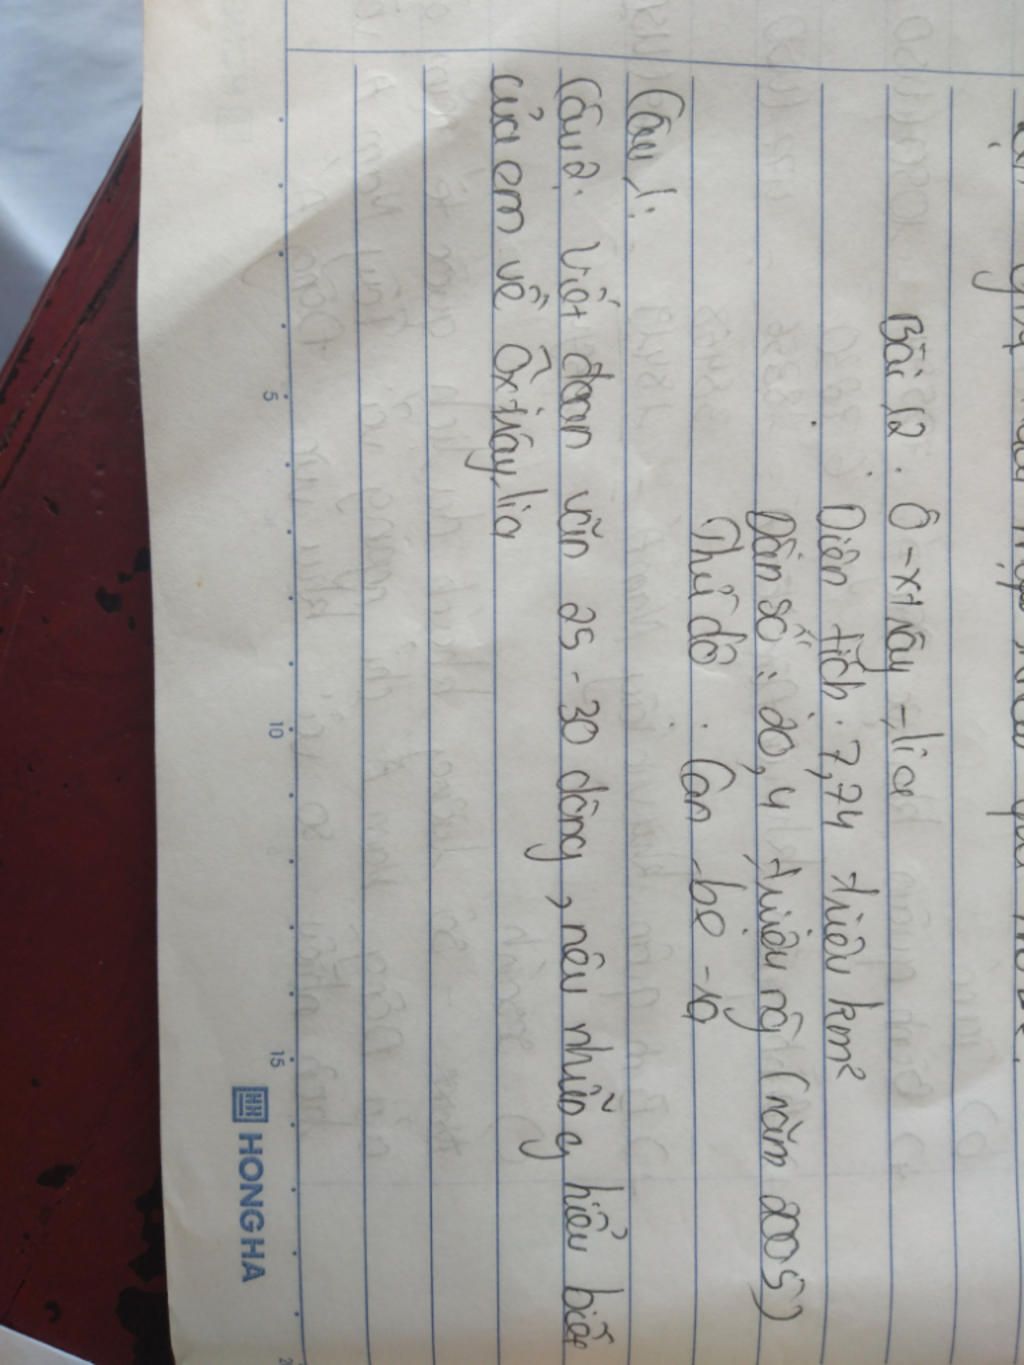 Bài 12. Ô-xtrây-lia
Diện tích. 7,74 triệu km²
Dân số: 20,4 triệu ng (năm 2005)
Thủ đô. Can-be-ra
Câu 1:
Câu 2. Viết đoạn văn 25-30 dòng, nêu những hiểu biết
của em về Ôxtrâylia
5
10
15
HONG HA